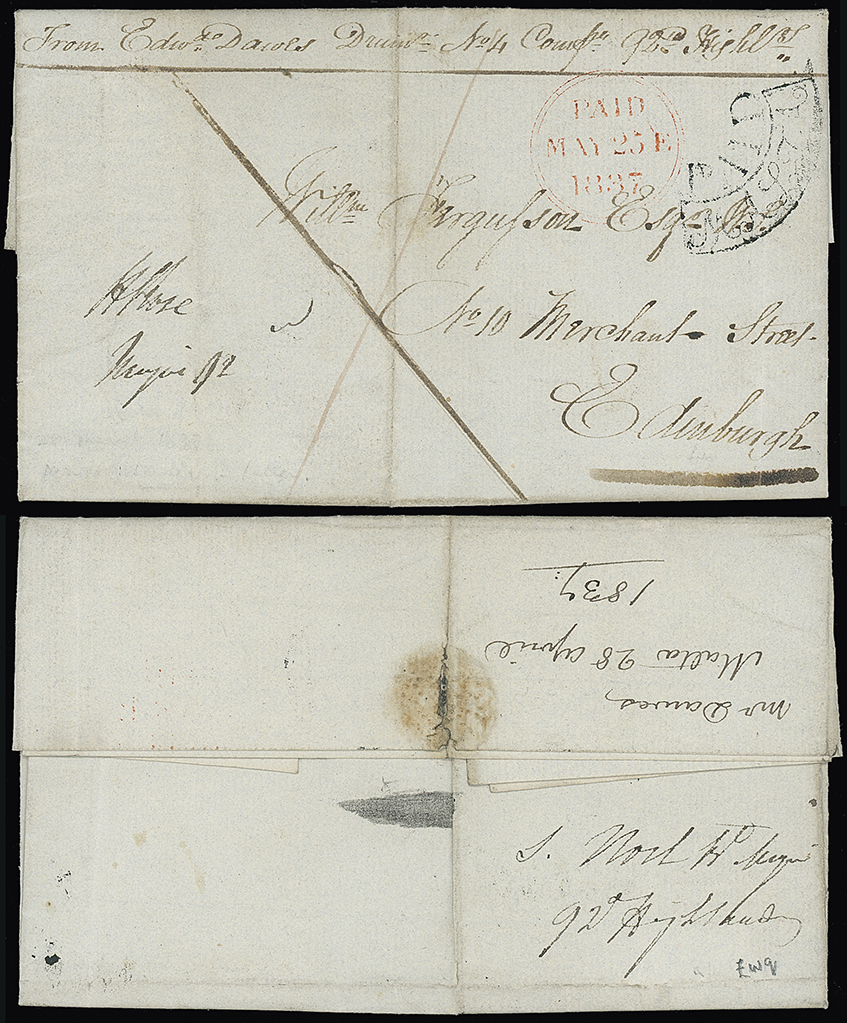 From Edwd Dawes Drumr No 4 Compy 92nd Highlrs
PAID
MAY 25 E
1837
PAID
MALTA
Willm Fergusson Esqr
No 10 Merchant Street
Edinburgh
Major 92
Mr Dawes
Malta 28 April
1837
92d Highlanders